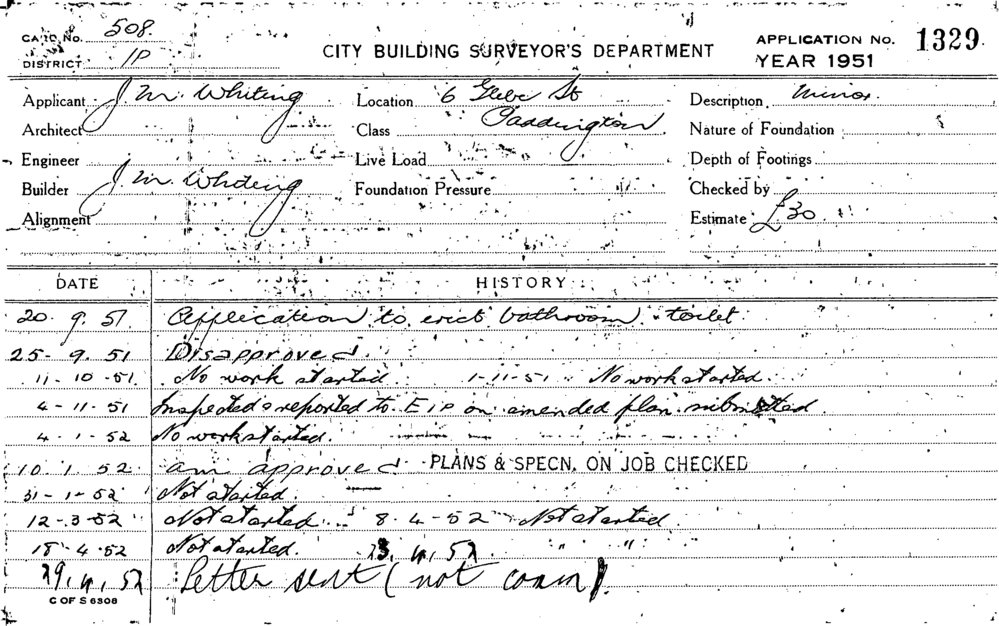 CARD No. 508.
DISTRICT 1P
CITY BUILDING SURVEYOR'S DEPARTMENT
APPLICATION No. 1329
YEAR 1951
Applicant J. M. Whiting Location 6 Glebe St Description Minor.
Architect Class Paddington Nature of Foundation
Engineer Live Load Depth of Footings
Builder J. M. Whiting Foundation Pressure Checked by
Alignment Estimate £30
DATE HISTORY
20. 9. 51 Application to erect bathroom & toilet
25- 9. 51 Disapproved
11- 10 -51. No work started. 1-11-51. No work started.
4-11-51 Inspected & reported to E1P on amended plan submitted.
4. 1. 52 No work started.
10. 1. 52 am approved PLANS & SPECN. ON JOB CHECKED
31-1-52 Not started.
12-3-52 Not started. 8.4-52 Not started.
18-4-52 Not started. 23.4.52 " "
29.4.52 Letter sent (not comm).
C OF S 6306